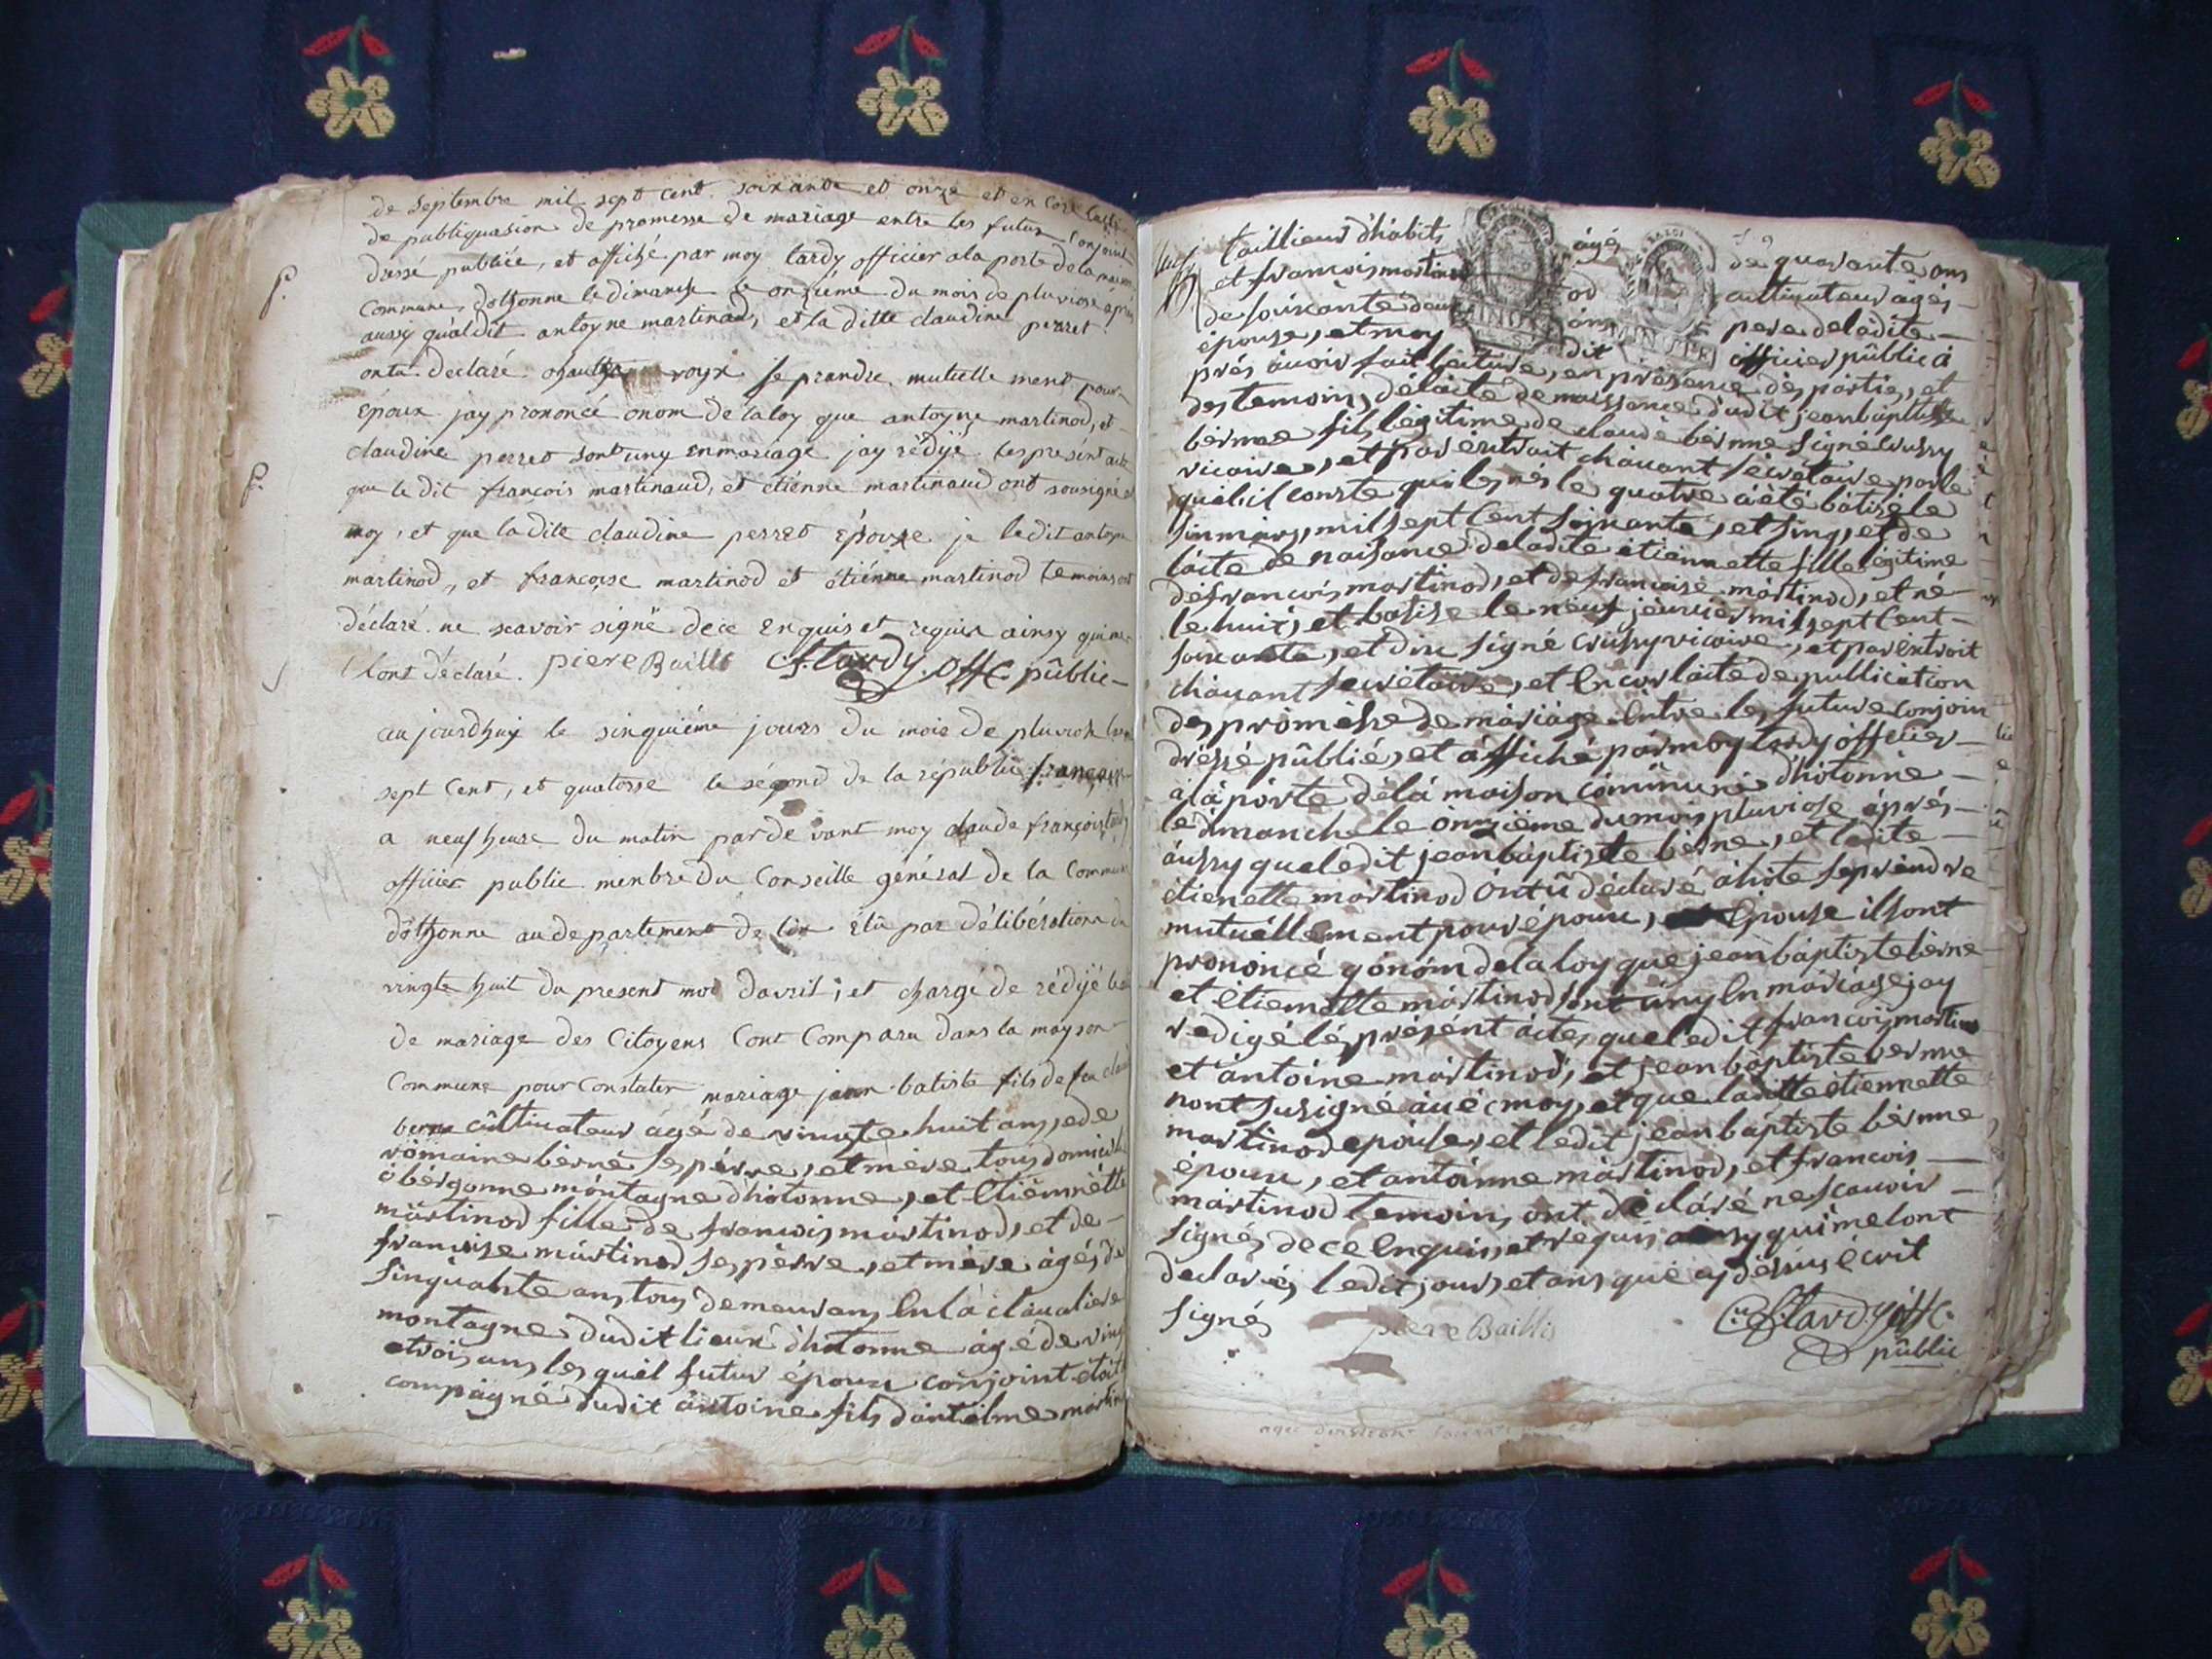 de Septembre mil sept cent soixante et onze et en core
de publiquasion de promesse de mariage entre les futur Conjoint
dressé publiée, et affiché par moy tardy officier a la porte de la maison
Commune, dothonne le dimanche le onzième du mois de pluviose après
aussy quáledit antoyne martinaud, et la ditte claudine perret
ontu declaré ahaulte voyx se prandre mutuelle ment pour
Epoux jay prononcé onom de la loy que antoyne martinod, et
claudine perret sont uny en mariage jay rédijé les présint acte
que le dit françois martinaud, et étiénne martinaud ont sousigné
moy, et que la ditte claudine perret Epouze je le dit antoyne
martinod, et françoise martinod et étiénne martinod temoins ont
déclaré ne scavoir signé dece Enquis et requis ainsy qui me
lont déclaré. piere Baillt C. f. tardy. off. pûblic
aujourdhuy le sinquiéme jours du mois de pluviose
sept Cent, et quatorse le ségond de la républic françoise
a neuf heure du matin parde vant moy claude françois
officier public menbre du Conseille général de la Commune
dothonne au departement de lin élû par délibération du
vingte huit du present moi davril; et chargé de rédijé les
de mariage des Citoyens Cont Comparu dans la mayson
Commune pour Constater mariage jean batiste fils de feu claude
berne cûltivateur agé de vingte huit ans, ede
romaine berne ses pérre, et mére tous domicilié
a bérgonne montagne dhotonne, et Etiénnétte
martinod fille de francois martinod, et de
francoise martinod ses pérre, et mére agés de
sinquante ans tous demeurans En la clavaliere
montagne dudit lieux dhotonne agé de ving
etrois ans les quél futur époux conjoint etoit
compagné dudit antoine fils dantélme martinod
taillieur dhabits agé de quarante ans
et francois martinod cultivateur agés
de soixante deux ans pere deladite
épouse, et moy dit officier pûblic a
prés avoir fait lecture, en présence des partie, et
des temoins, délacte de naissance dudit jean baptiste
bérnne fils légitime de claude bérnne signé crussy
vicaire, et par extrait chavant sécrétaire par le
quél il conste quil est né le quatre a été batisé le
sin mars, mil sept Cent soixante, et sing, et de
lacte de naisance deladite étiennette fille légitime
de francois martinod, et de francoise martinod, et né
le huit, et batise le neuf jeuvier mil sept Cent
soixante, et dix signé crussy vicaire, et par extrait
chavant secrétaire, et Encor lacte de publication
des proméhse de mariage Entre les future Conjoin
dréssé pûblié, et affiché par moy tardy officier
a la pórte déla maison commune dhotonne
le dimanche le onzieme du mois pluviose aprés
aussy que ledit jean baptiste bérne, et ladite
étienette martinod ontû déclaré ahote se prendre
mutuéllement pour époux, Epouse ilsont
prononcé y ónóm de la loy que jean baptiste bérne
et étiennétte martinod sont uny En mariage jay
redigé lés présent acte, que ledit francois martinod
et antoine martinod, et jean baptiste vernne
nont susigné avéc moy, et que laditte étiennette
martinod epouse, et ledit jean baptiste bérnne
époux, et antoinne martinod, et francois
martinod temoins ont déclaré ne scauoir
signés dece Enquis, et requis ainsy quime lont
declarés ledit jours, et ans que cy déssus écrit
signés piere Baillis C. f. tardy off.
pûblic